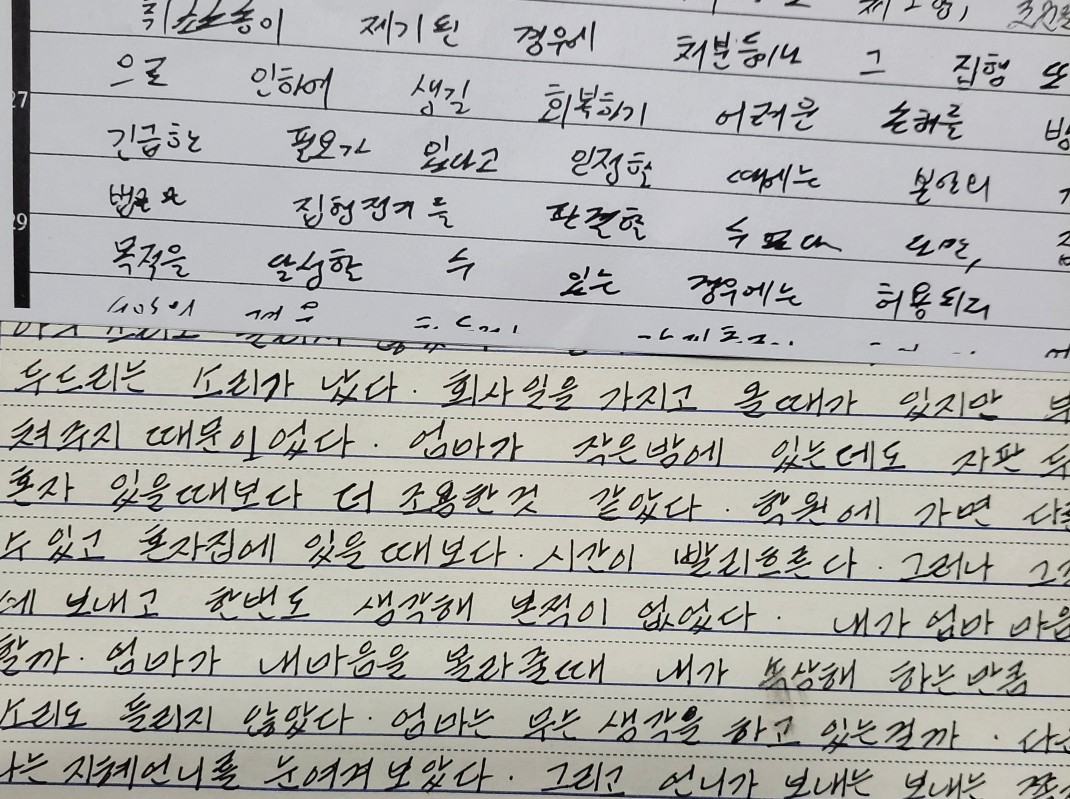 취소소송이 제기된 경우에 처분등이나 그 집행 또
27
으로 인하여 생길 회복하기 어려운 손해를
긴급한 필요가 있다고 인정할 때에는 본안의
29
집행정지를 판결할 수 있다 다만,
목적을 달성할 수 있는 경우에는 허용되지
두드리는 소리가 났다. 회사일을 가지고 올때가 있지만
쳐주지 때문이었다. 엄마가 작은방에 있는데도 자판 두
혼자 있을때보다 더 조용한것 같았다. 학원에 가면
수 있고 혼자집에 있을때보다. 시간이 빨리흐른다. 그러나
에 보내고 한번도 생각해 본적이 없었다. 내가 엄마 마음
할까. 엄마가 내마음을 몰라줄때 내가 속상해 하는만큼
소리도 들리지 않았다. 엄마는 무슨 생각을 하고 있는걸까.
나는 지혜언니를 눈여겨 보았다. 그리고 언니가 보내는 보내는